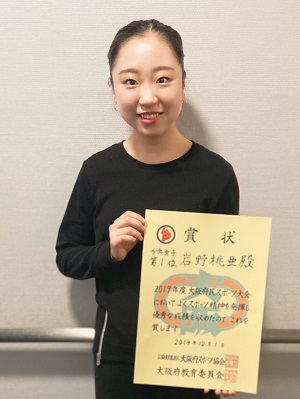 賞状
少年女子
第1位 岩野桃亜殿
2019年度大阪府民スポーツ大会
においてよくスポーツ精神を発揮し
優秀な成績を収めたので これを
賞します
2019年12月1日
公益財団法人 大阪府スポーツ協会
大阪府教育委員会